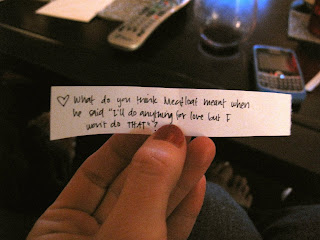 ♡ What do you think Meatloaf meant when
he said "I'll do anything for love but I
won't do THAT"?